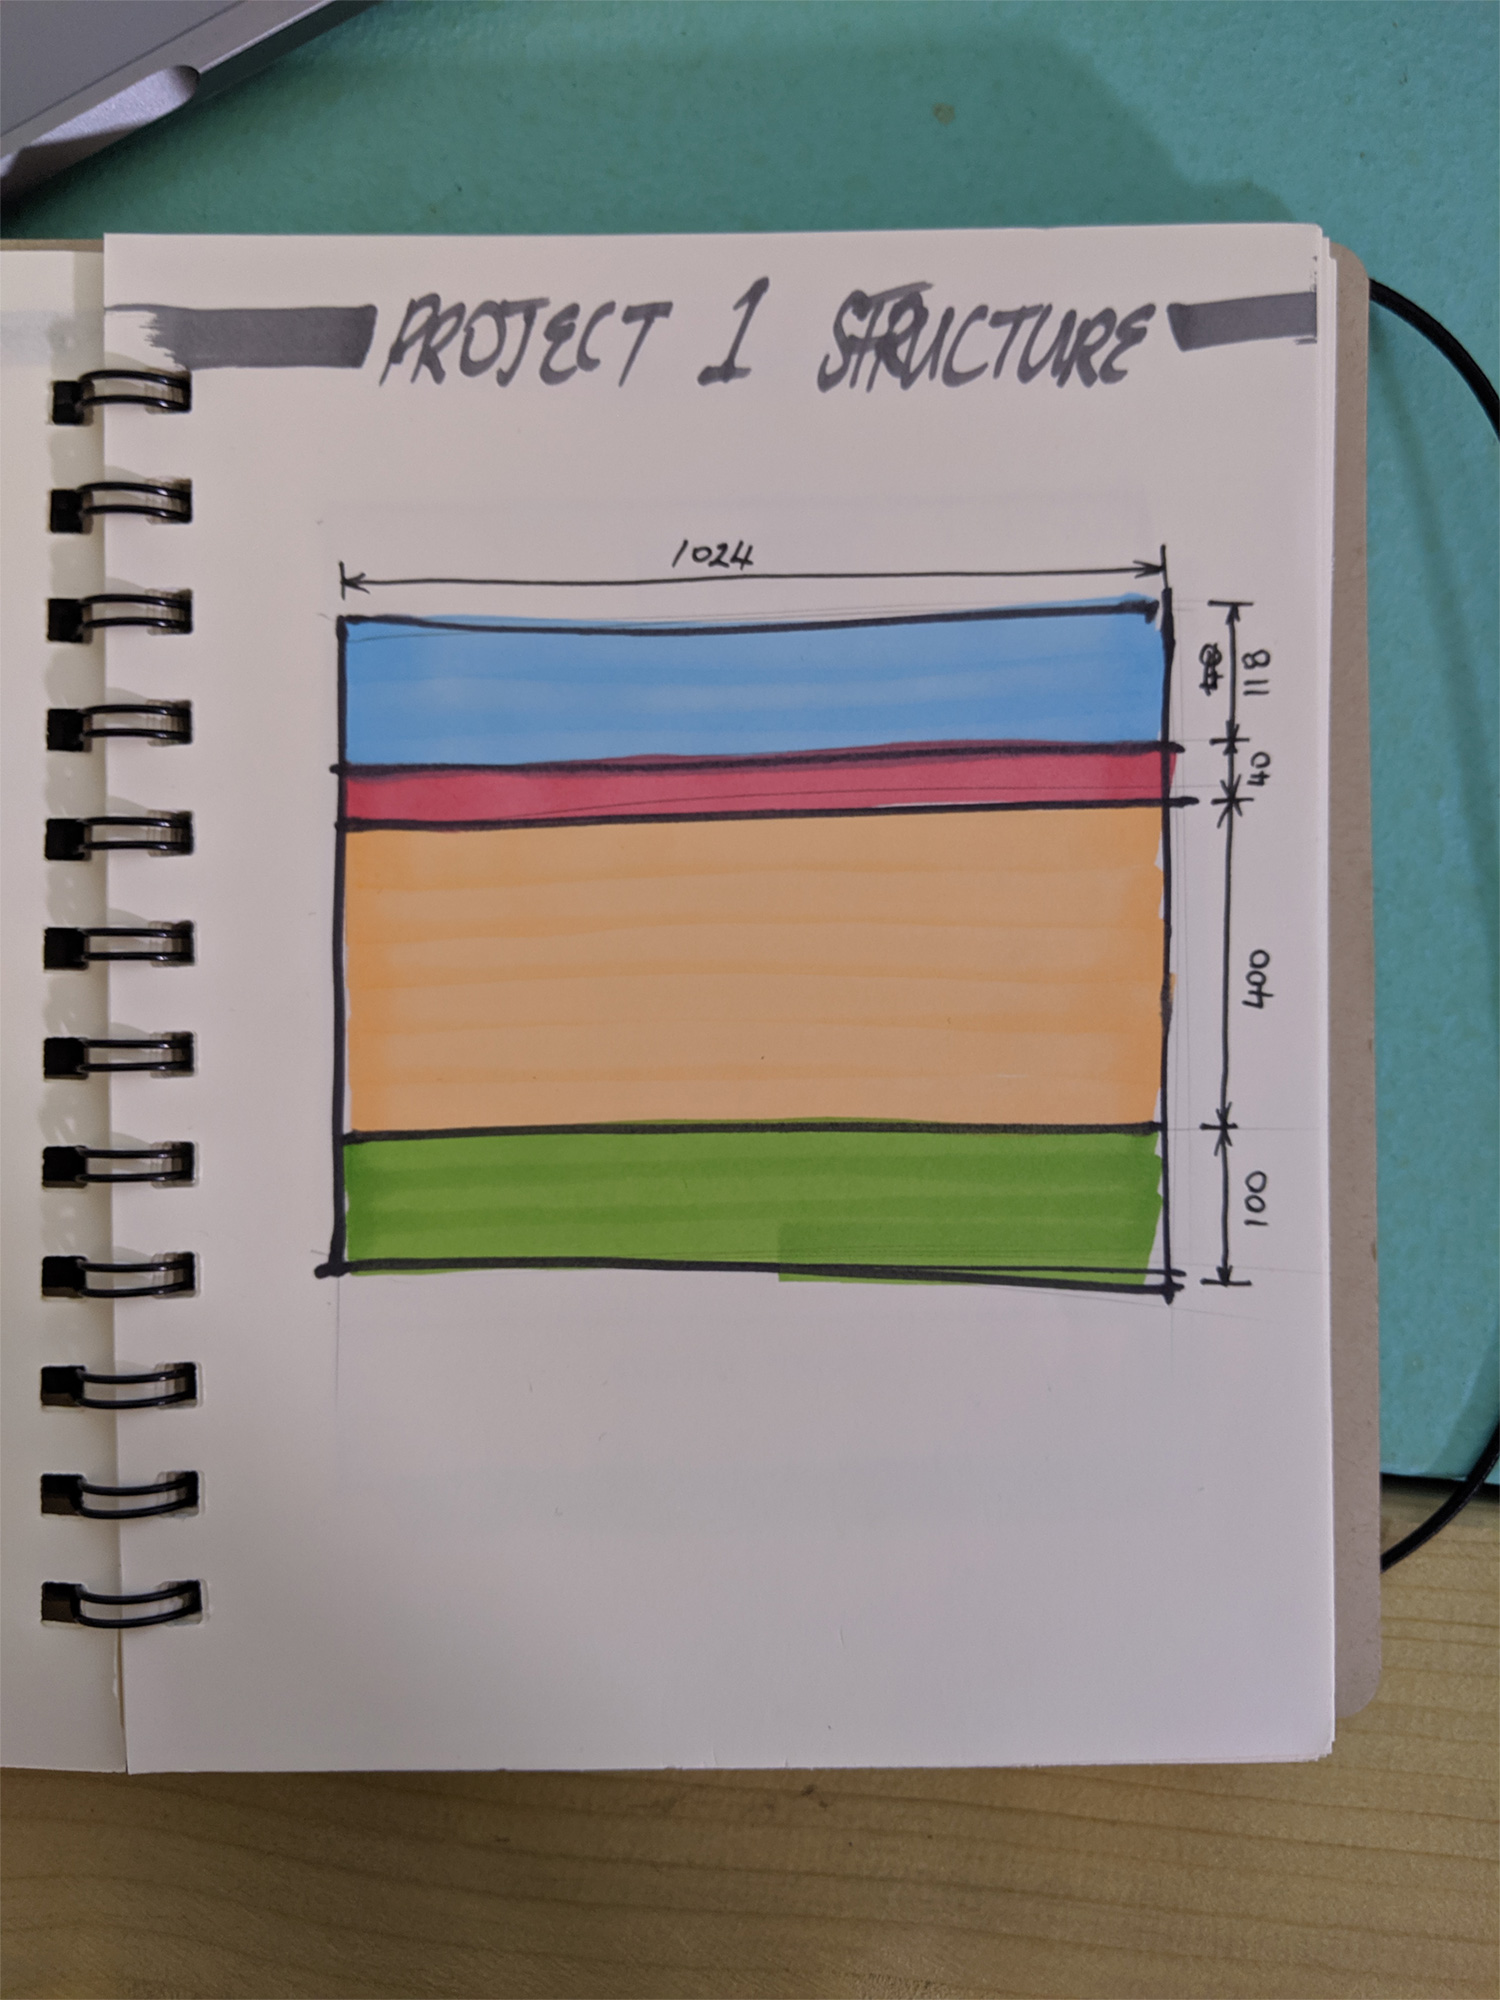 PROJECT 1 STRUCTURE
1024
118
40
400
100